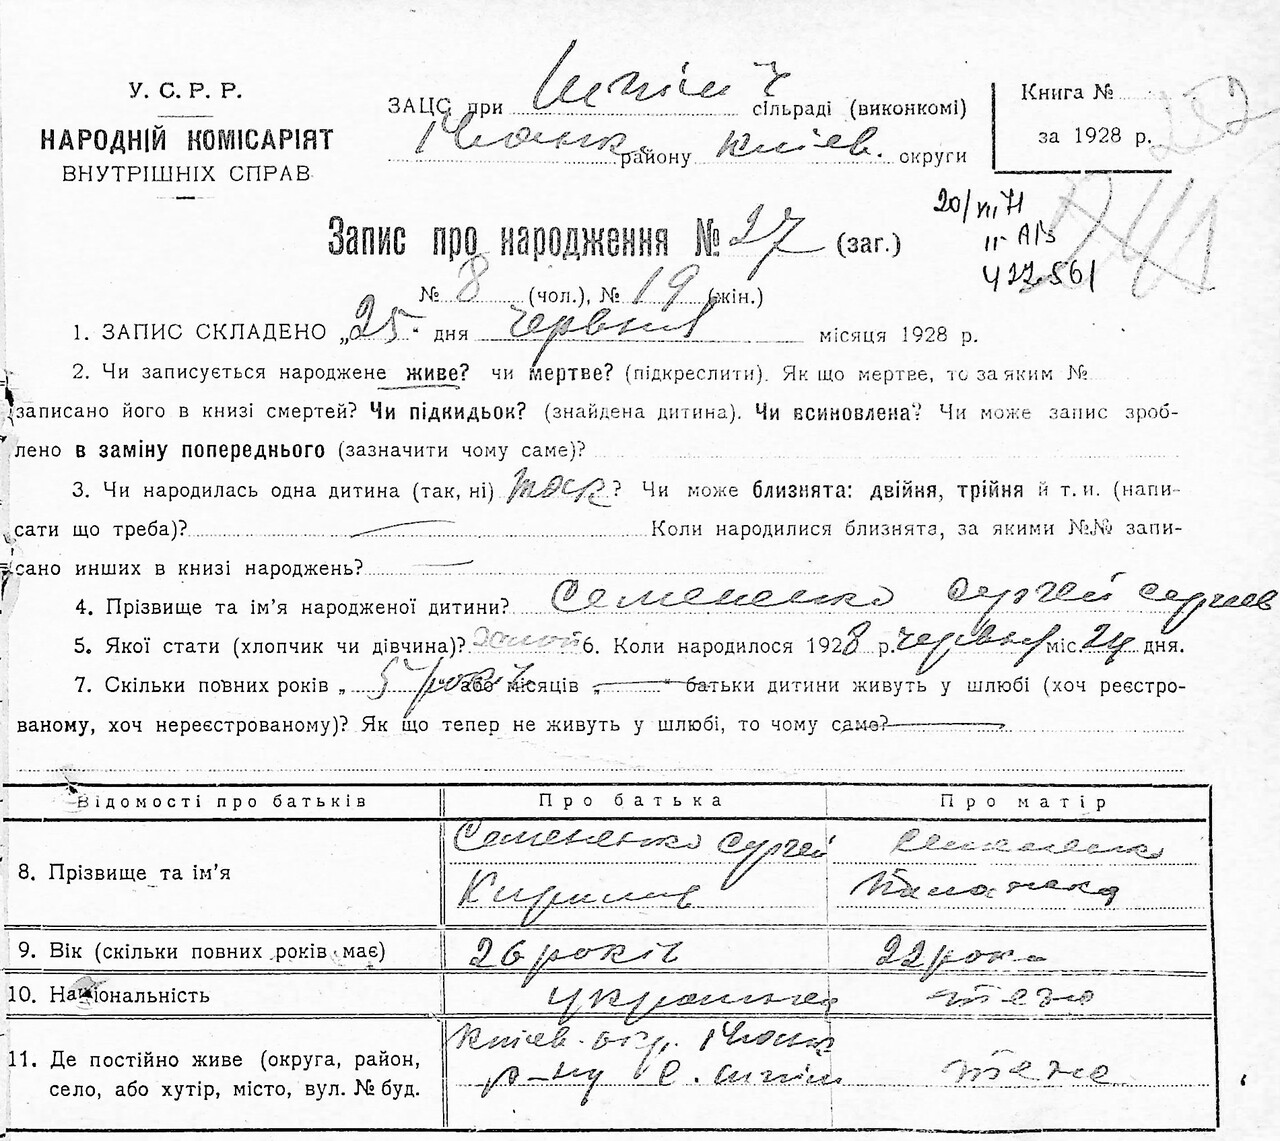 У. С. Р. Р.
НАРОДНІЙ КОМІСАРІЯТ
ВНУТРІШНІХ СПРАВ
ЗАЦС при сільраді (виконкомі)
району Київ. округи
Книга №
за 1928 р.
252
241
20/VII 71
422561
Запис про народження № 27 (заг.)
№ 8 (чол.), № 19 (жін.)
1. ЗАПИС СКЛАДЕНО „25" дня червня місяця 1928 р.
2. Чи записується народжене живе? чи мертве? (підкреслити). Як що мертве, то за яким №
записано його в книзі смертей? Чи підкидьок? (знайдена дитина). Чи всиновлена? Чи може запис зроб-
лено в заміну попереднього (зазначити чому саме)?
3. Чи народилась одна дитина (так, ні) так? Чи може близнята: двійня, трійня й т. и. (напи-
сати що треба)? Коли народилися близнята, за якими №№ запи-
сано инших в книзі народжень?
4. Прізвище та ім'я народженої дитини? Семененко Сергей Сергиев
5. Якої стати (хлопчик чи дівчина)? 6. Коли народилося 1928 р. червня міс. 24 дня.
7. Скільки повних років „5 років або місяців „ " батьки дитини живуть у шлюбі (хоч реєстро-
ваному, хоч нереєстрованому)? Як що тепер не живуть у шлюбі, то чому саме?
Відомості про батьків Про батька Про матір
8. Прізвище та ім'я Семененко Сергей Семененко
Кирилов
9. Вік (скільки повних років має) 26 років 22 рок
10. Національність теж
11. Де постійно живе (округа, район, Київ. окр.
село, або хутір, місто, вул. № буд. р-ну с. теже